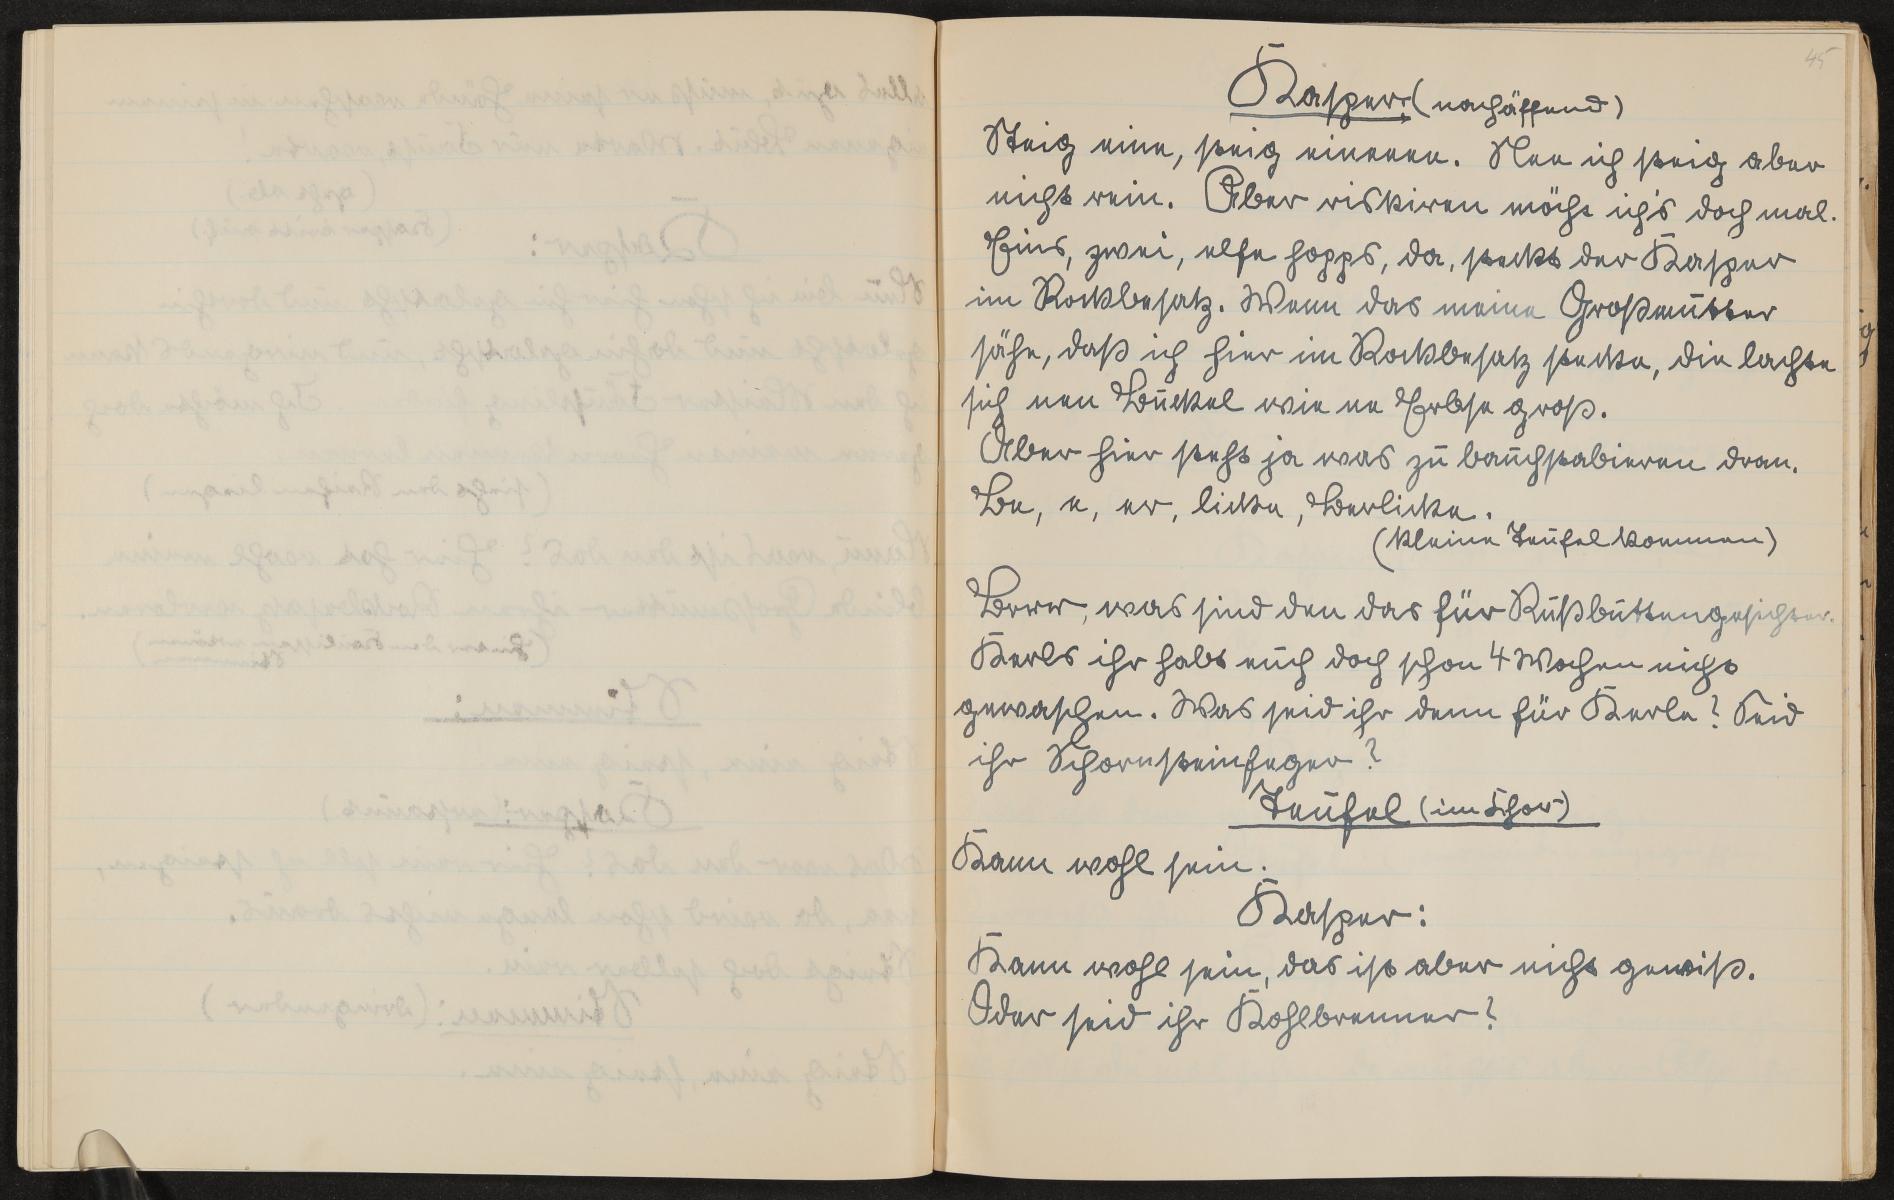 45
Kasper: (nachäffend)
Steig eine, steig eineeee. Nee ich steig aber
nicht rein. Aber riskiren möcht ich's doch mal.
Eins, zwei, elfe hopps, da, steckt der Kasper
im Rockbesatz. Wenn das meine Großmutter
sähe, daß ich hier im Rockbesatz stecke, die lachte
sich nen Buckel wie ne Erbse groß.
Aber hier steht ja was zu bauchstabieren dran.
Be, e, er, licke, Berlicke.
(kleine Teufel kommen)
Brrrr, was sind den das für Rußbuttengesichter.
Kerls ihr habt euch doch schon 4 Wochen nicht
gewaschen. Was seid ihr denn für Kerle? Seid
ihr Schornsteinfeger?
Teufel (im Chor)
Kann wohl sein.
Kasper:
Kann wohl sein, das ist aber nicht gewiß.
Oder seid ihr Kohlbrenner?